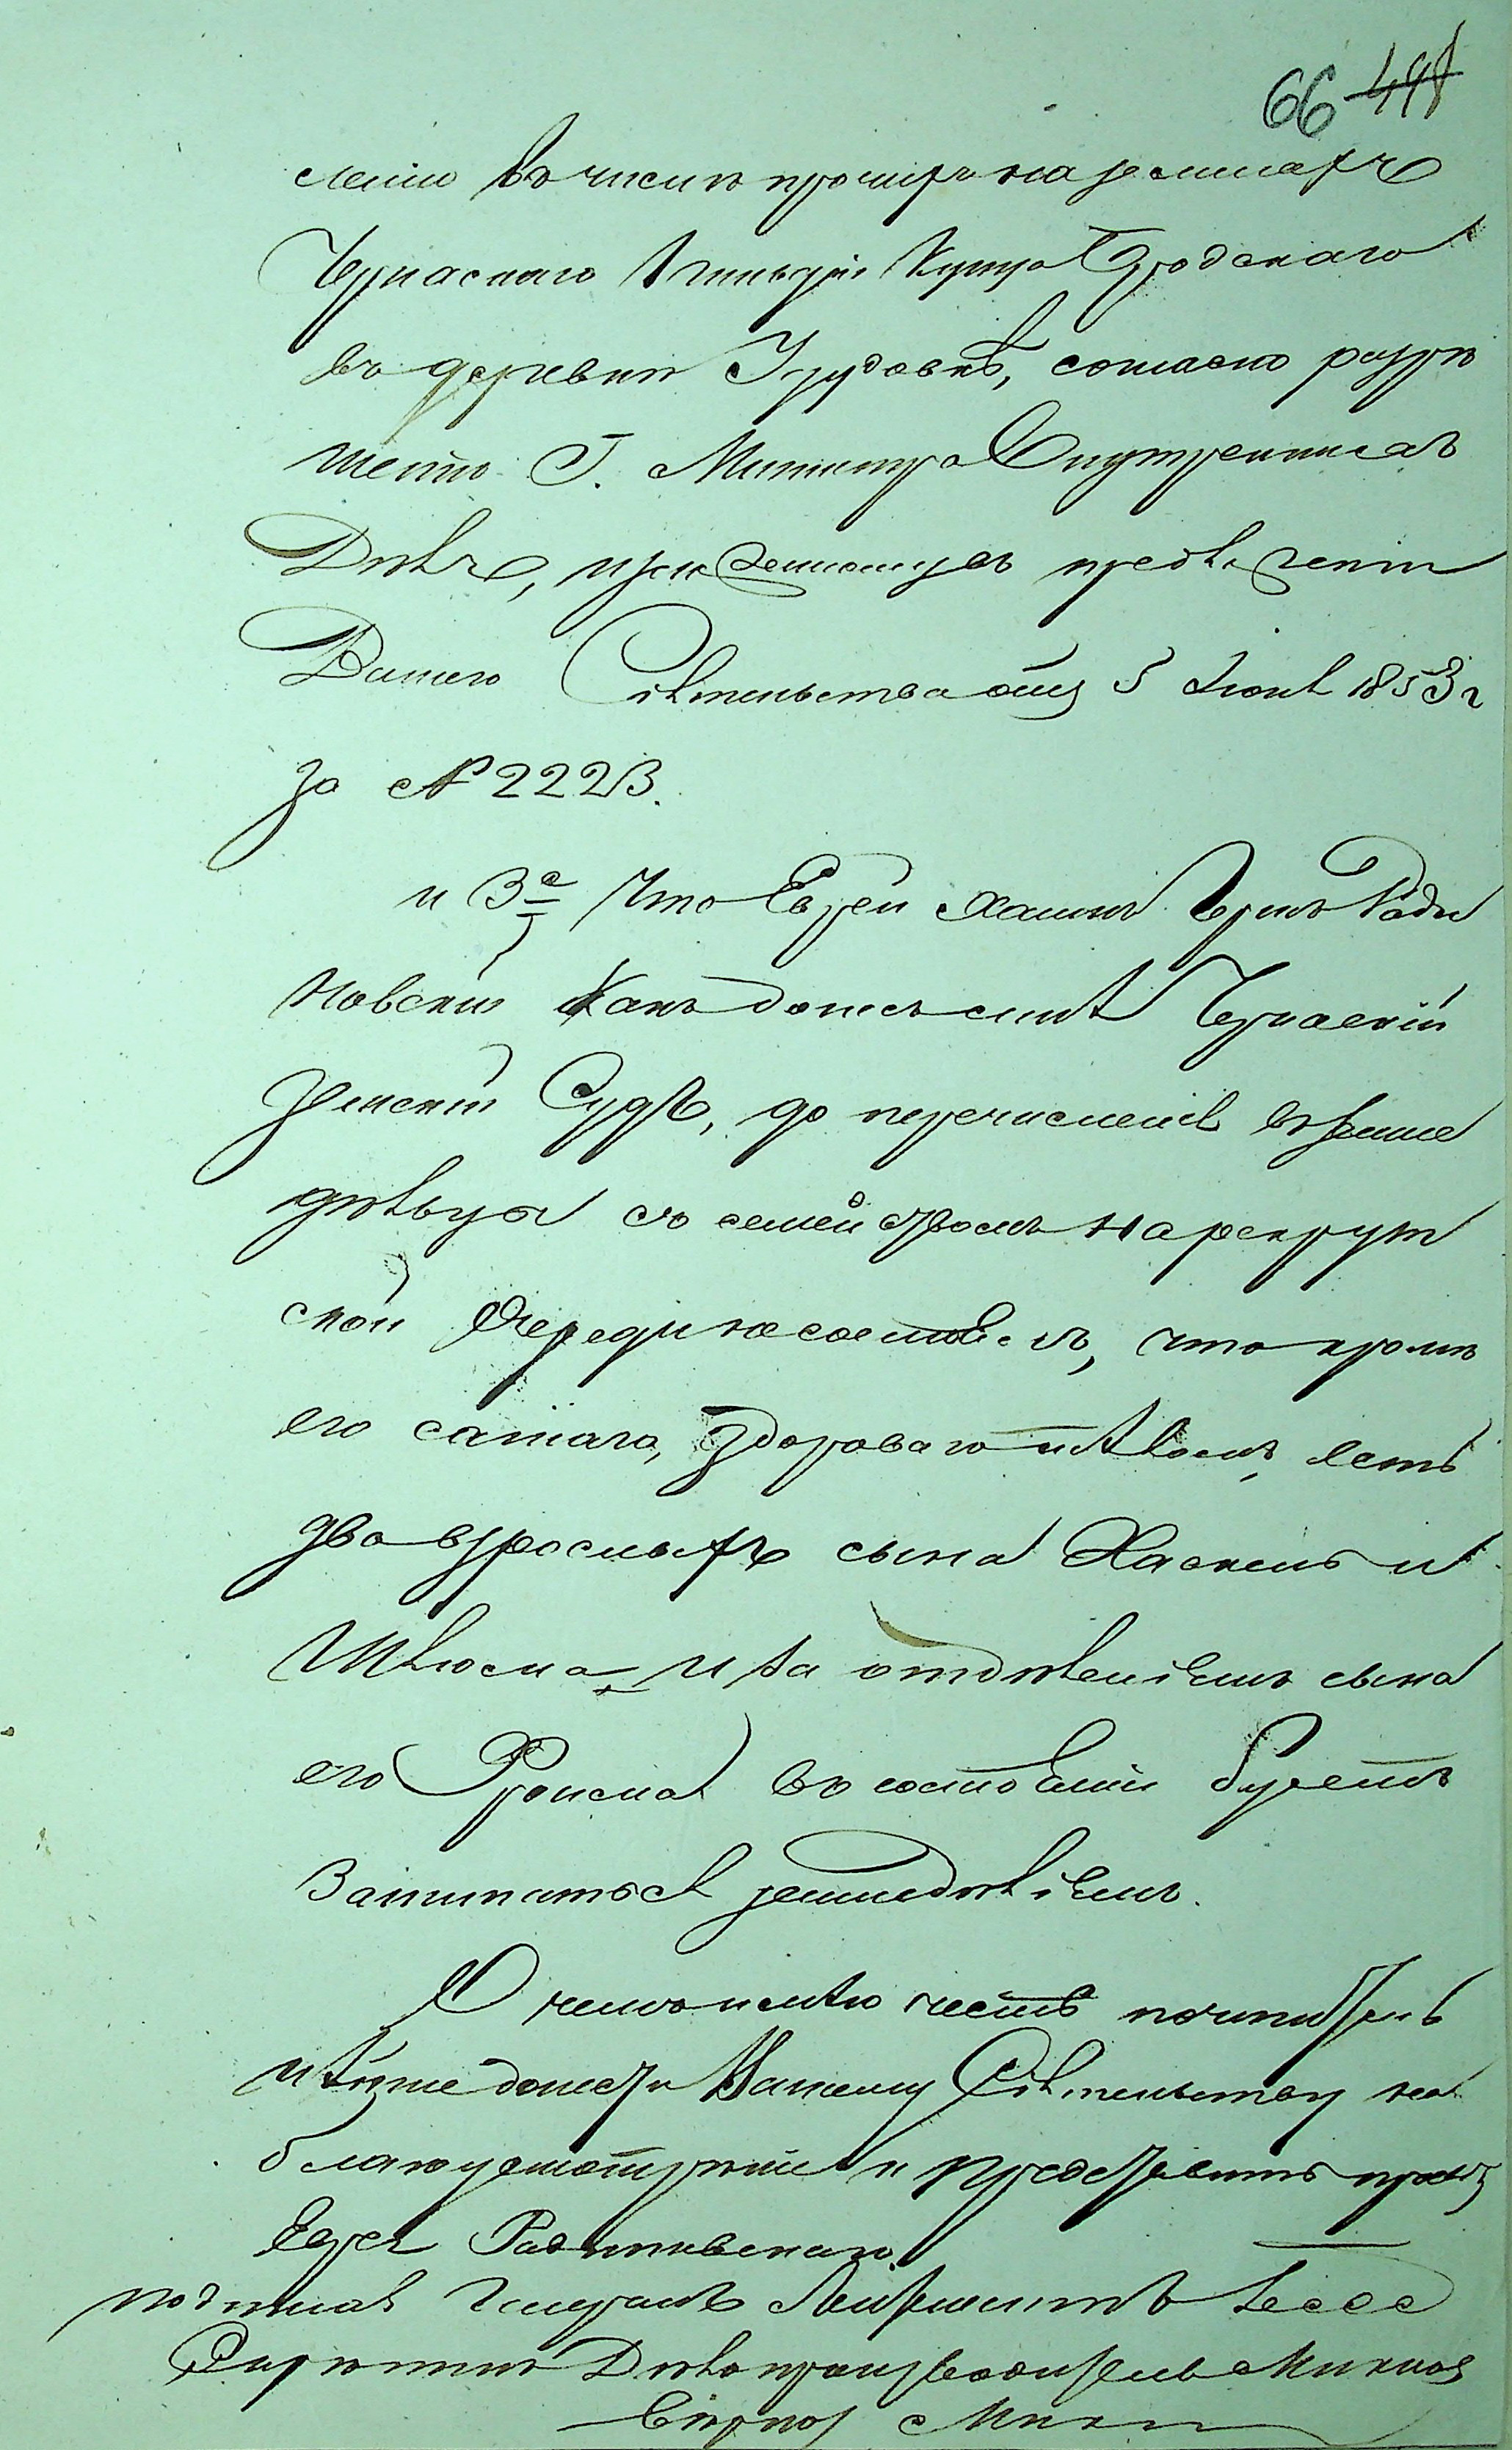 66 491
сленію въ число прочихъ на земляхъ
Черкаскаго купца Бродскаго
въ деревни Трудовкѣ, согласно разрѣ
шенію Г. Министра Внутреннихъ
Дѣлъ, изложенному въ предложеніи
Вашего Сіятельства отъ 5 Іюня 1853 г
за № 2223.
и 3е Что Еврей Хаимъ Гершъ Ради
новскій какъ донеслъ Черкаскій
Земскій Судъ, до перечисленія въ земле
дѣльцы съ семействомъ на рекрут
ской очереди не состоялъ, что кромѣ
его самаго, здороваго тѣломъ, есть
два взрослыхъ сына Хаскель и
Шлюома и за отдѣленіемъ сына
его Фроима въ состояніи будетъ
заниматься земледѣліемъ.
О чемъ имѣю честь почтитель
нѣйше донести Вашему Сіятельству на
благоусмотрѣніе и представить
Еврея
подписалъ Генералъ Лейтенантъ Гессе
Скрѣпилъ Дѣлопроизводитель
Вѣрно: